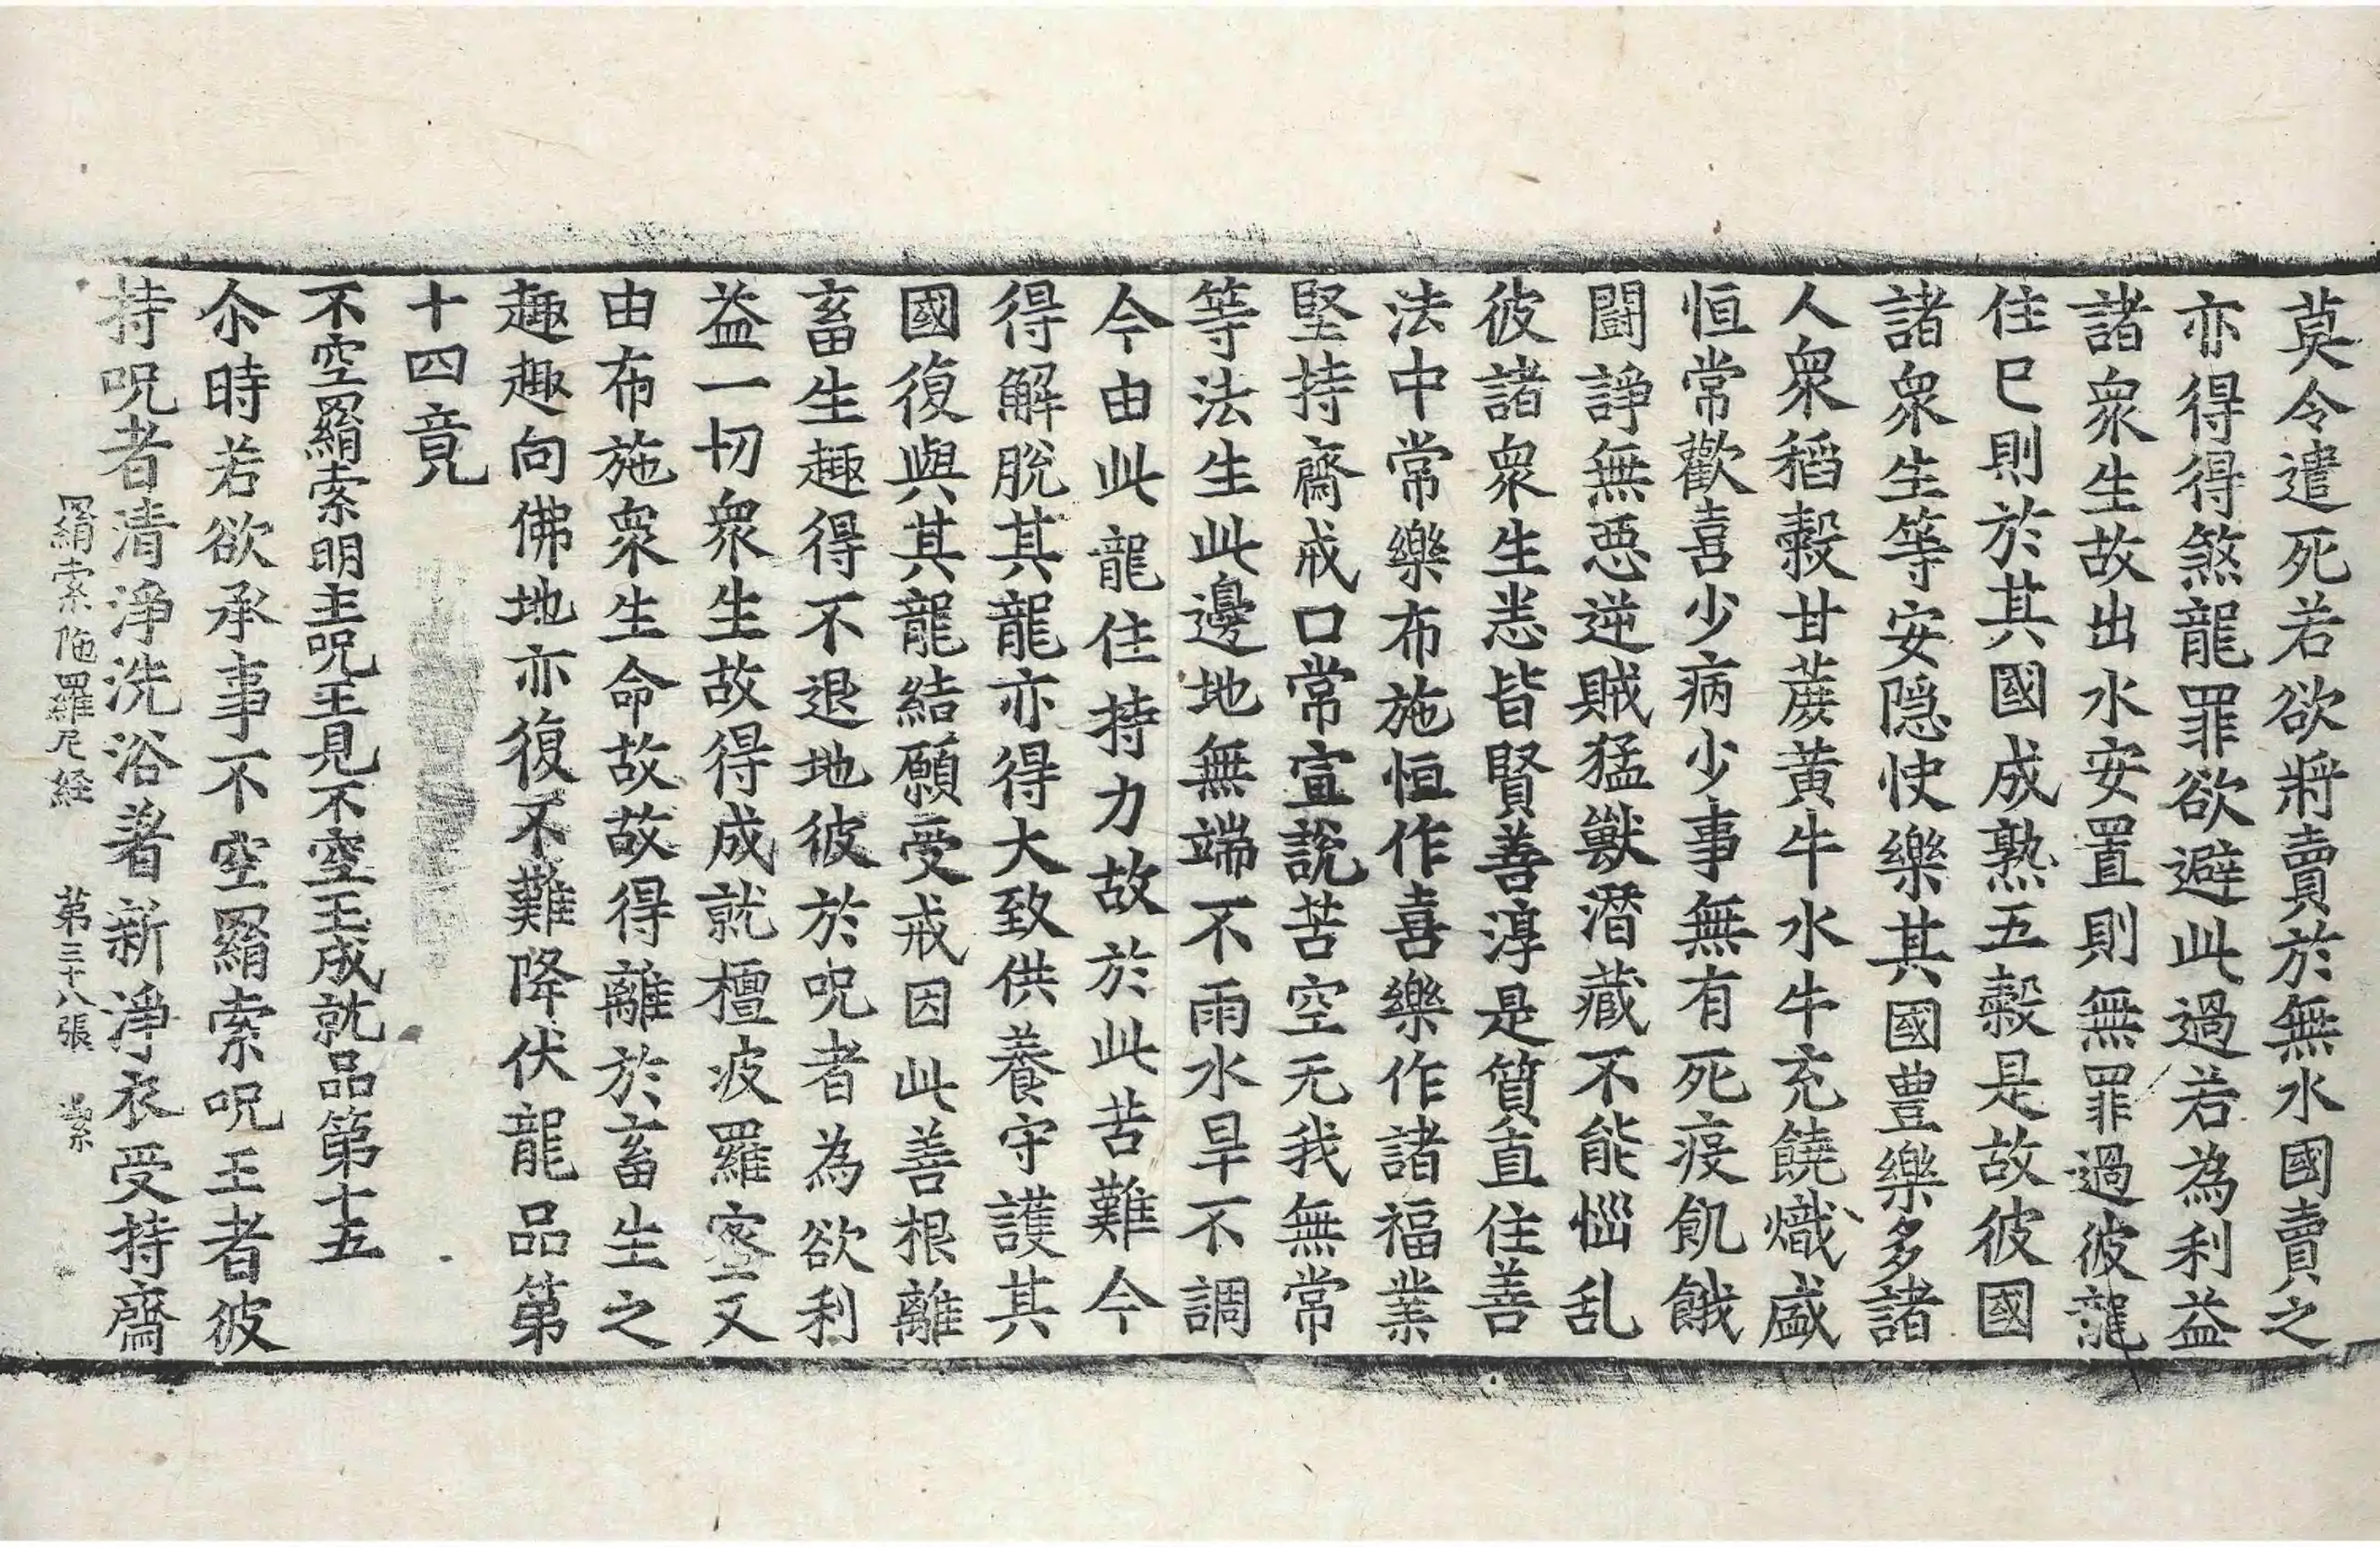 莫令遣死若欲將賣於無水國賣之
亦得得煞龍罪欲避此過若為利益
諸衆生故出水安置則無罪過彼龍
住已則於其國成熟五穀是故彼國
諸衆生等安隠快樂其國豊樂多諸
人衆稻穀甘蔗黄牛水牛充饒熾盛
恒常歡喜少病少事無有死疫飢餓
闘諍無悪逆賊猛獸潛藏不能惱乱
彼諸衆生悉皆賢善淳是質直住善
法中常樂布施恒作喜樂作諸福業
堅持齋戒口常宣說苦空无我無常
等法生此邊地無端不雨水旱不調
今由此龍住持力故於此苦難今
得解脫其龍亦得大致供養守護其
國復與其龍結願受戒因此善根離
畜生趣得不退地彼於呪者為欲利
益一切衆生故得成就檀波羅密又
由布施衆生命故故得離於畜生之
趣趣向佛地亦復不難降伏龍品第
十四竟
不空羂索明主呪王見不空王成就品第十五
尒時若欲承事不空羂索呪王者彼
持呪者清淨洗浴著新淨衣受持齋
羂索陁羅尼經 第三十八張